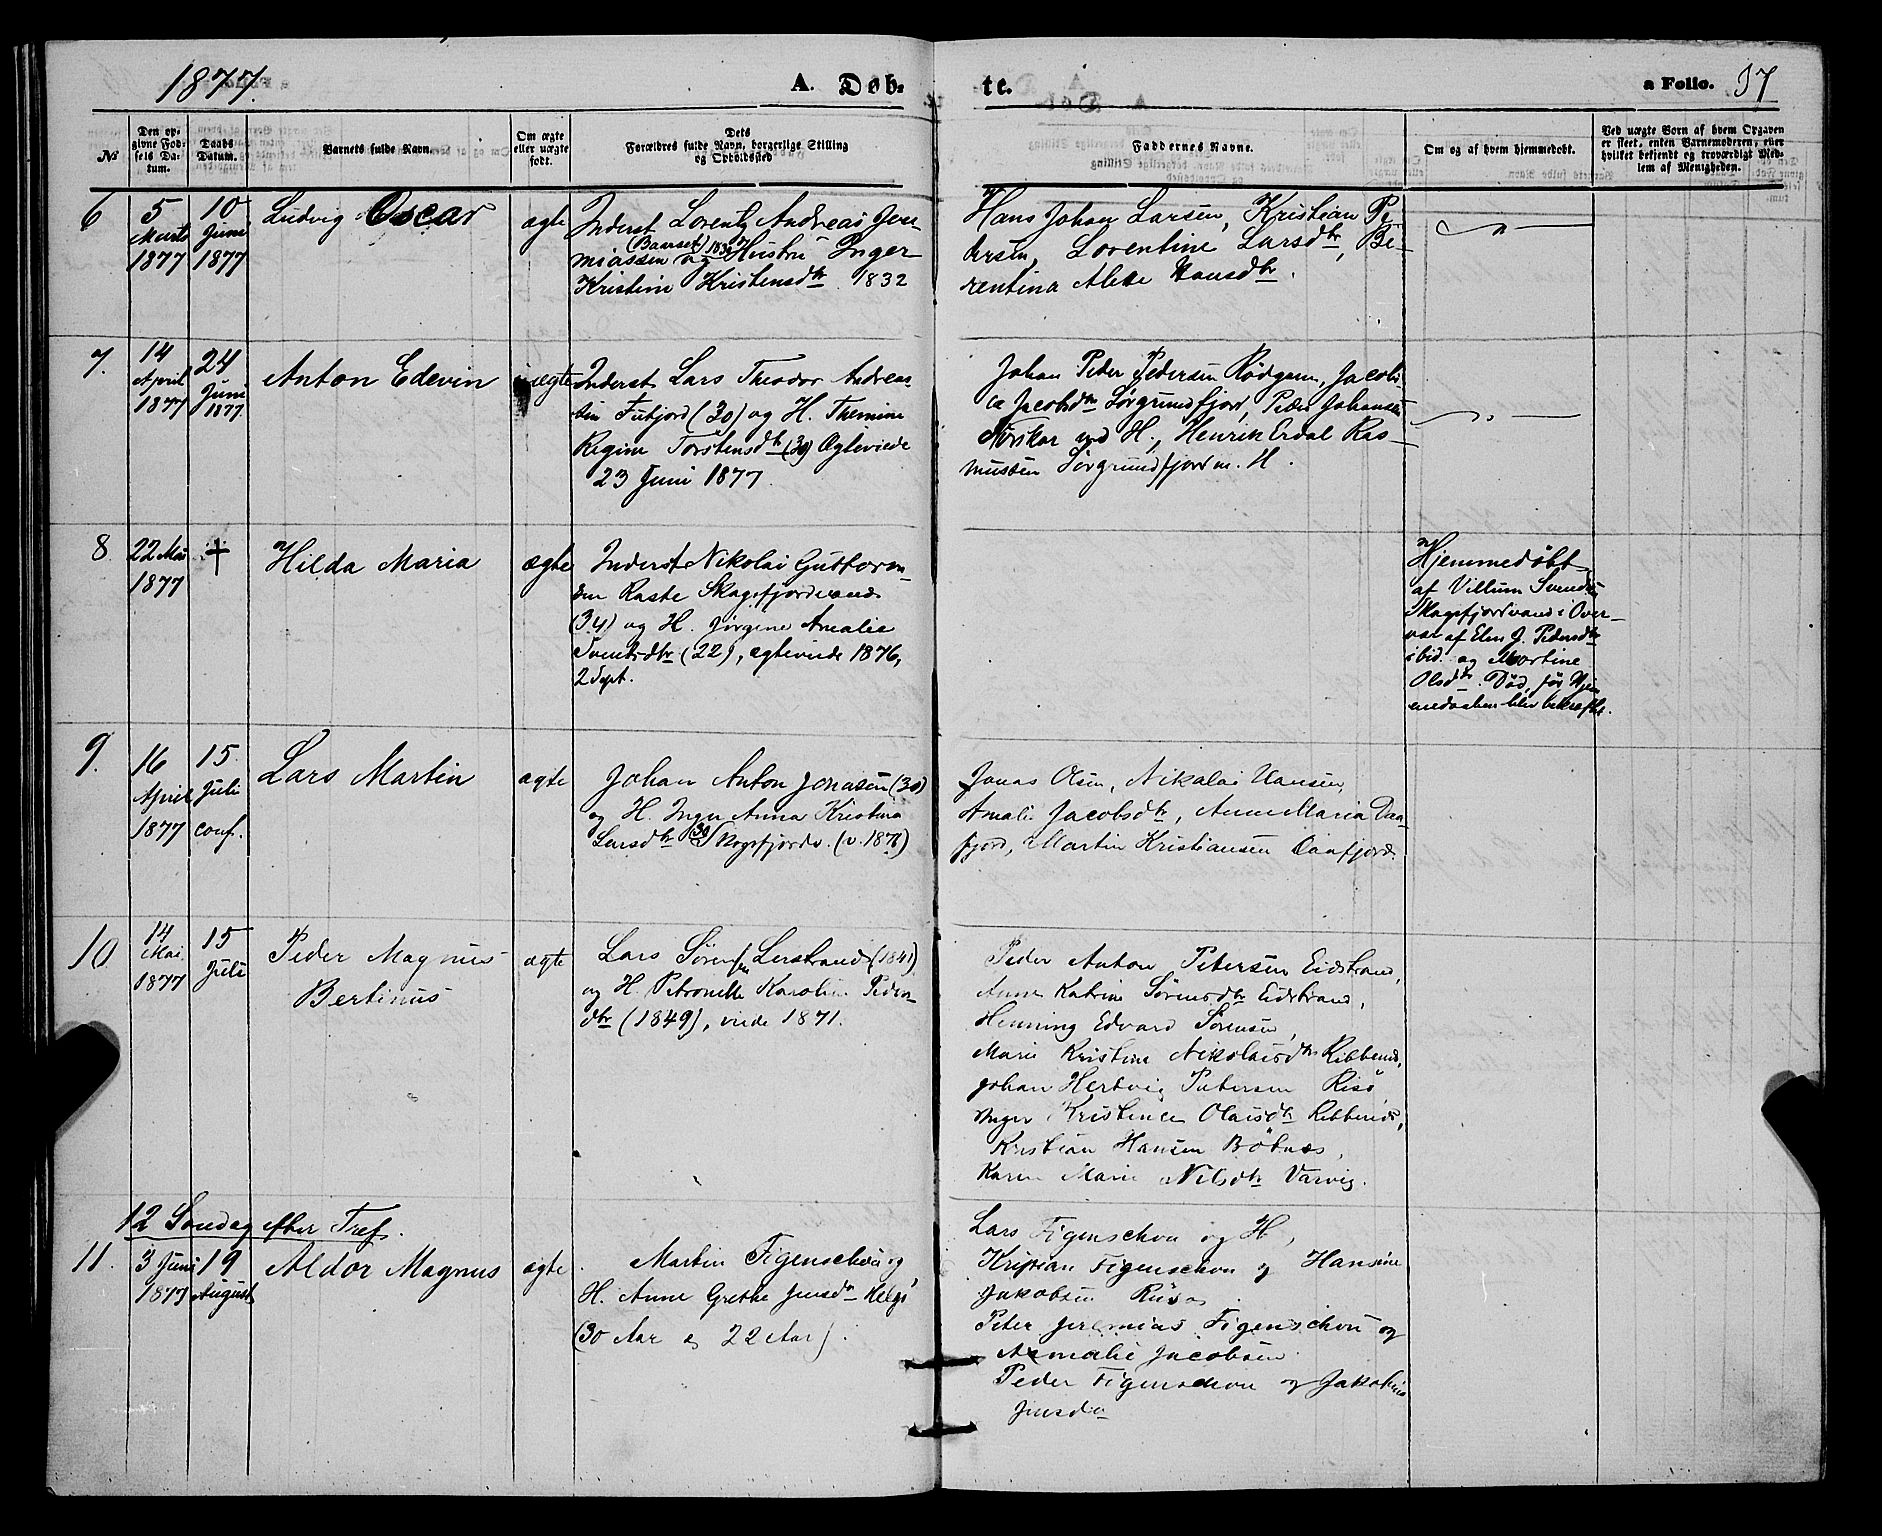 1877.
A. Døb-
te.
a Folio. 37
№
Den op-
givne Fød-
sels Da-
tum.
Daabs
Datum.
Barnets fulde Navn.
Om ægte
eller uægte
født.
Dets
Forældres fulde Navn, borgerlige Stilling
og Opholdssted
Faddernes Navne.
Om og af hvem hjemmedøbt.
Ved uægte Børn af hvem Opgaven
er skeet, enten Barnemoderen, eller
hvilket bekjendt og troværdigt Med-
lem af Menigheden.
6
5
Marts
1877
10
Juni
1877
Ludvig Oscar
ægte
Inderst Lorentz Andreas Jere-
miassen og Hustru Inger
Kristine Kristensdtr 1832
Hans Johan Larsen, Kristian Pe-
dersen, Lorentine Larsdtr, Be-
rentina Alette Hansdtr.
7.
14
April
1877
24
Juni
1877.
Anton Edevin
ægte
Inderst Lars Theodor Andreas-
sen Fufjord (30) og H. Themine
Regine Torstensdtr (30) Ægteviede
23 Juni 1877.
Johan Peder Pedersen Rødgam, Jacobi-
ca Jacobsdtr Sørgrundfjord, Peder Johansen
Torskar med H., Henrik Erdal Ras-
mussen Sørgrundfjord m. H.
8
22 Mai
1877
†
Hilda Maria
ægte
Inderst Nikolai Guttorm-
sen Raste Skagefjordvand
(34) og H. Jørgine Amalie
Svendsdtr (22), ægteviede 1876,
2 Sept.
Hjemmedøbt
af Villum Svendsen
Skogsfjordvand i Over-
vær af Elen J. Pedersdtr
ibid. og Martine
Olsdtr. Død, før Hjem-
medaaben blev bekræftet.
9.
16
April
1877
15
Juli
conf.
Lars Martin
ægte
Johan Anton Jonasen (30)
og H. Inger Anna Kristina
Larsdtr (30) Skogsfjordv. (v. 1876)
Jonas Olsen, Nikolai Hansen,
Amalie Jacobsdtr, Anne Maria Daa-
fjord, Martin Kristiansen Daafjord.
10
14
Mai
1877
15
Juli
Peder Magnus
Bertinus
ægte
Lars Sørensen Lerstrand (1841)
og H. Petronelle Karoline Peders-
dtr (1849), viede 1871.
Peder Anton Petersen Eidstrand,
Anne Katrine Sørensdtr Eidstrand,
Henning Edvard Sørensen,
Marie Kristine Nikolaisdtr Ribbenes,
Johan Hertvig Petersen Risø
Inger Kristence Olaisdtr Ribbenes,
Kristian Hansen Bøtnes,
Karen Marie Nilsdtr Varvig.
12 Søndag efter Tref.
11.
3 Juni
1877
19
August
Aldor Magnus
ægte
Martin Figenschou og
H. Anne Grethe Jensdtr Helgø
(30 Aar og 22 Aar).
Lars Figenschou og H,
Kristian Figenschou og Hansine
Jakobsen
Peter Jeremias Figenschou og
Amalie Jacobsen
Peder Figenschou og Jakobine
Jensdtr